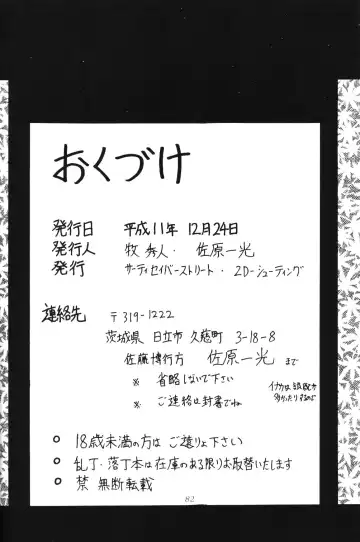 おくづけ
発行日 平成11年 12月24日
発行人 牧 秀人・ 佐原一光
発行 サーティセイバーストリート・2D-シューティング
連絡先 〒319-1222
茨城県 日立市 久慈町 3-18-8
佐藤博行方 佐原一光 まで
※ 省略しないで下さい
※ ご連絡は封書でね
○ 18歳未満の方は ご遠りょ下さい
○ 乱丁・落丁本は在庫のある限りお取替いたします
○ 禁 無断転載
82